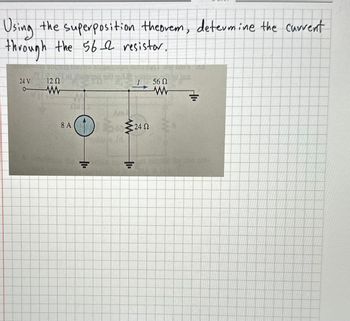 Using the superposition theorem, determine the current
through the 56 Ω resistor.
24 V 12 Ω I 56 Ω
8 A 24 Ω